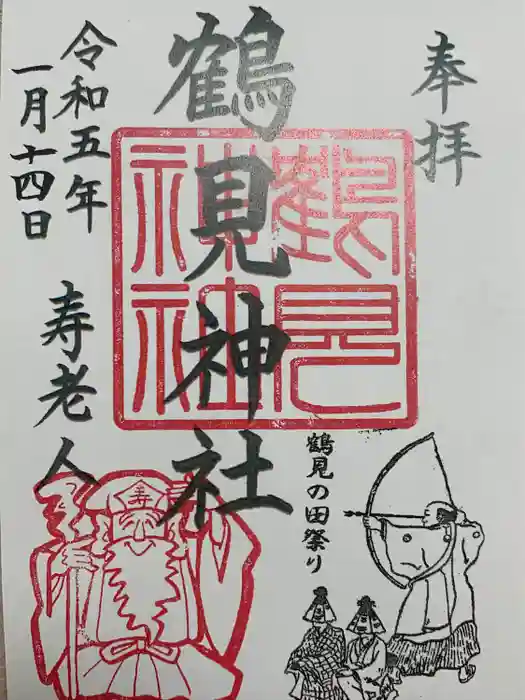 奉拝
鶴見神社
鶴見神社
鶴見の田祭り
令和五年
一月十四日
寿老人
寿